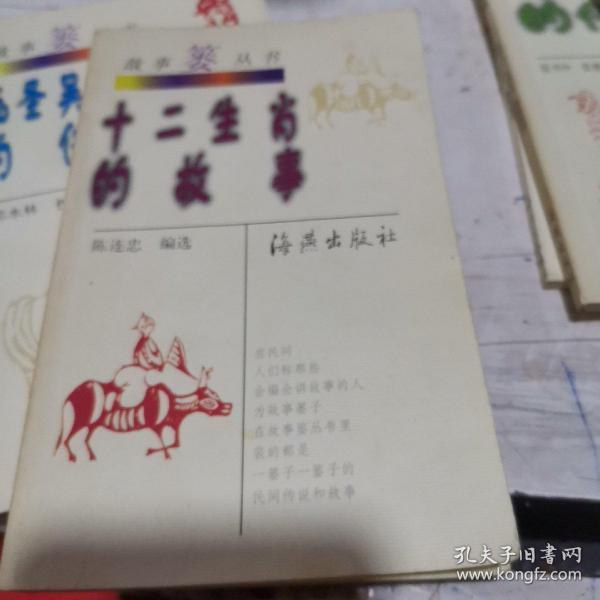 故事篓丛书
十二生肖
的故事
陈连忠 编选
海燕出版社
在民间
人们称那些
会编会讲故事的人
为故事篓子
在故事篓丛书里
装的都是
一篓子一篓子的
民间传说和故事
故事篓
圣吴
的传
孔夫子旧书网
www.kongfz.com